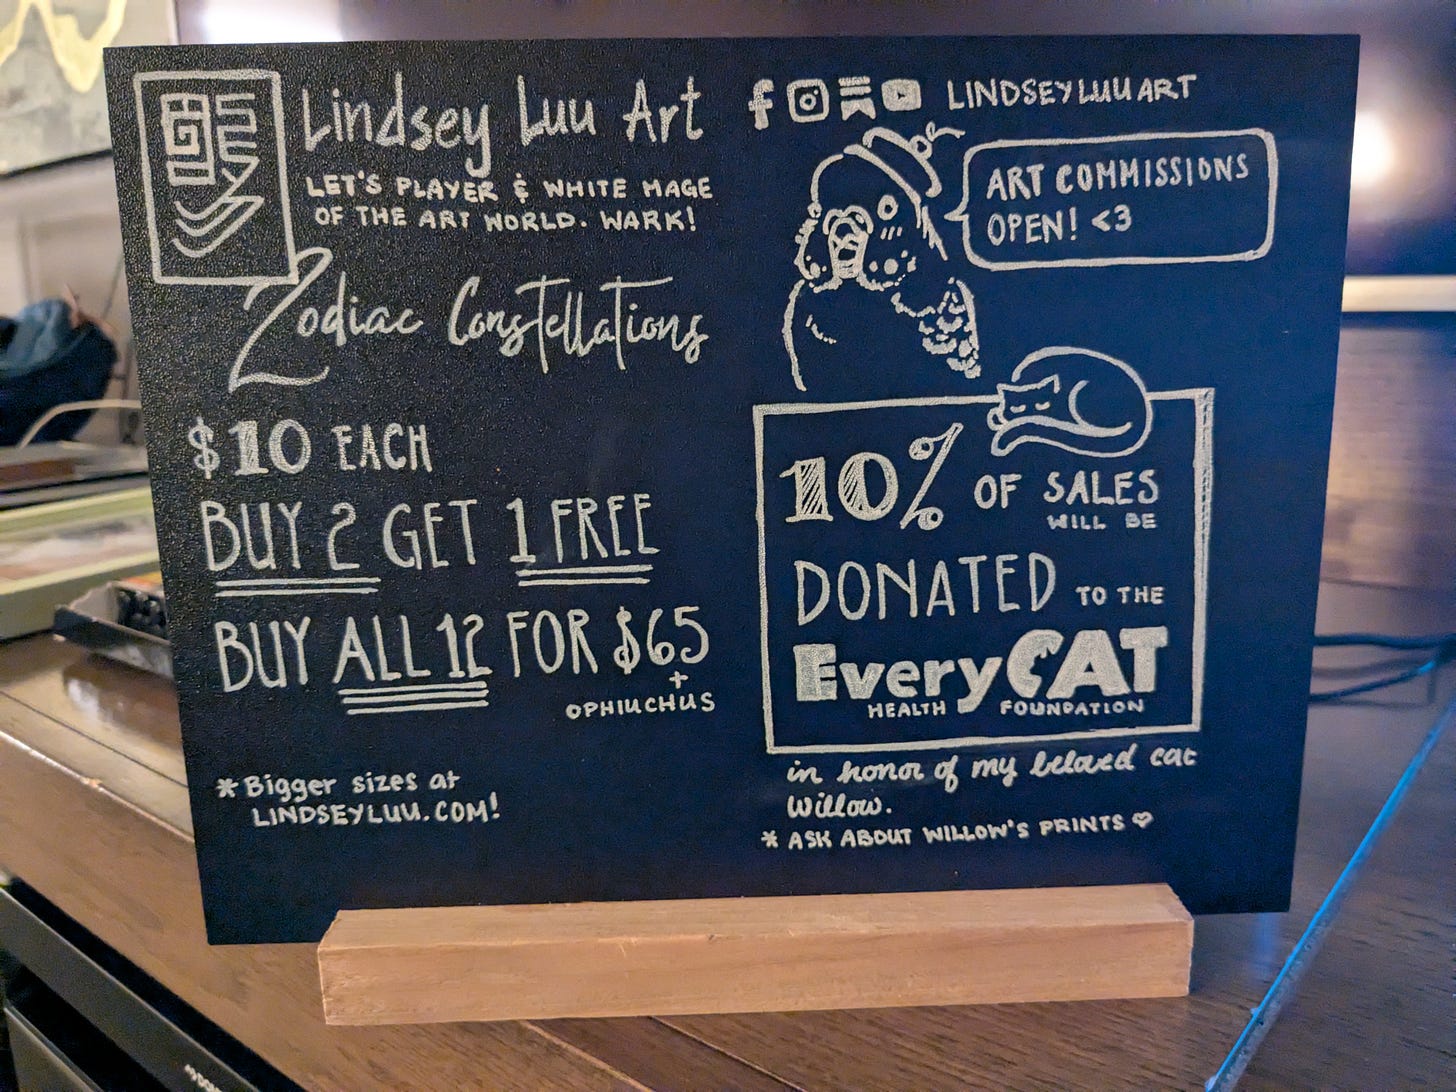 Lindsey Luu Art
LET'S PLAYER & WHITE MAGE
OF THE ART WORLD. WARK!
Zodiac Constellations
$10 EACH
BUY 2 GET 1 FREE
BUY ALL 12 FOR $65
+
OPHIUCHUS
*Bigger sizes at
LINDSEYLUU.COM!
LINDSEYLUUART
ART COMMISSIONS
OPEN! <3
10% OF SALES
WILL BE
DONATED TO THE
EveryCAT
HEALTH FOUNDATION
in honor of my beloved cat
Willow.
* ASK ABOUT WILLOW'S PRINTS ♡